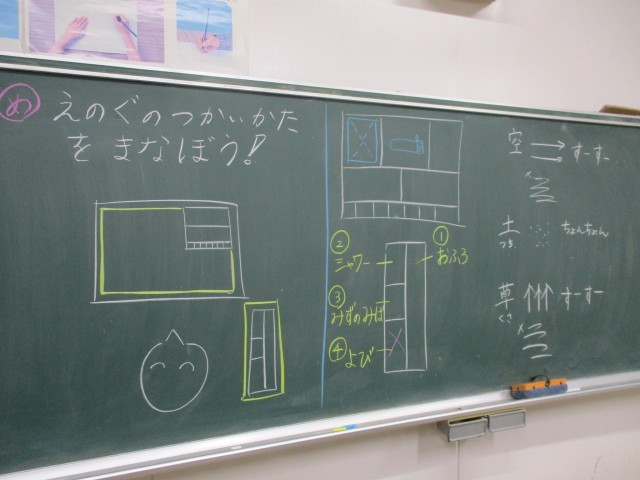 め
えのぐのつかいかた
をまなぼう!
①
おふろ
②
シャワー
③
みずのみば
④
よび
空 すーすー
土 ちょんちょん
つち
草 すーすー
くさ